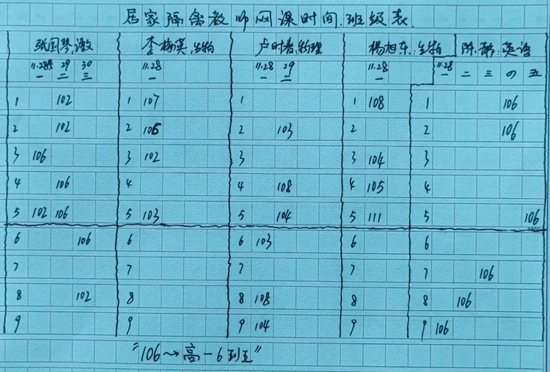 居家隔离教师网课时间.班级表.
张国琴,数 李梅英,生物 卢时春,物理 杨旭东,生物 陈静,英语
11.28 29 30 11.28 11.28 29 11.28 11.28
一 二 三 一 一 二 一 一 二 三 四 五
1 102 1 107 1 1 108 1 106
2 102 2 106 2 103 2 2 106
3 106 3 102 3 3 104 3
4 106 4 4 108 4 105 4
5 102 106 5 103 5 104 5 111 5 106
6 106 6 6 103 6 6
7 7 7 7 7 106
8 102 8 8 108 8 8 106
9 9 9 104 9 9 106
"106→高一6班"